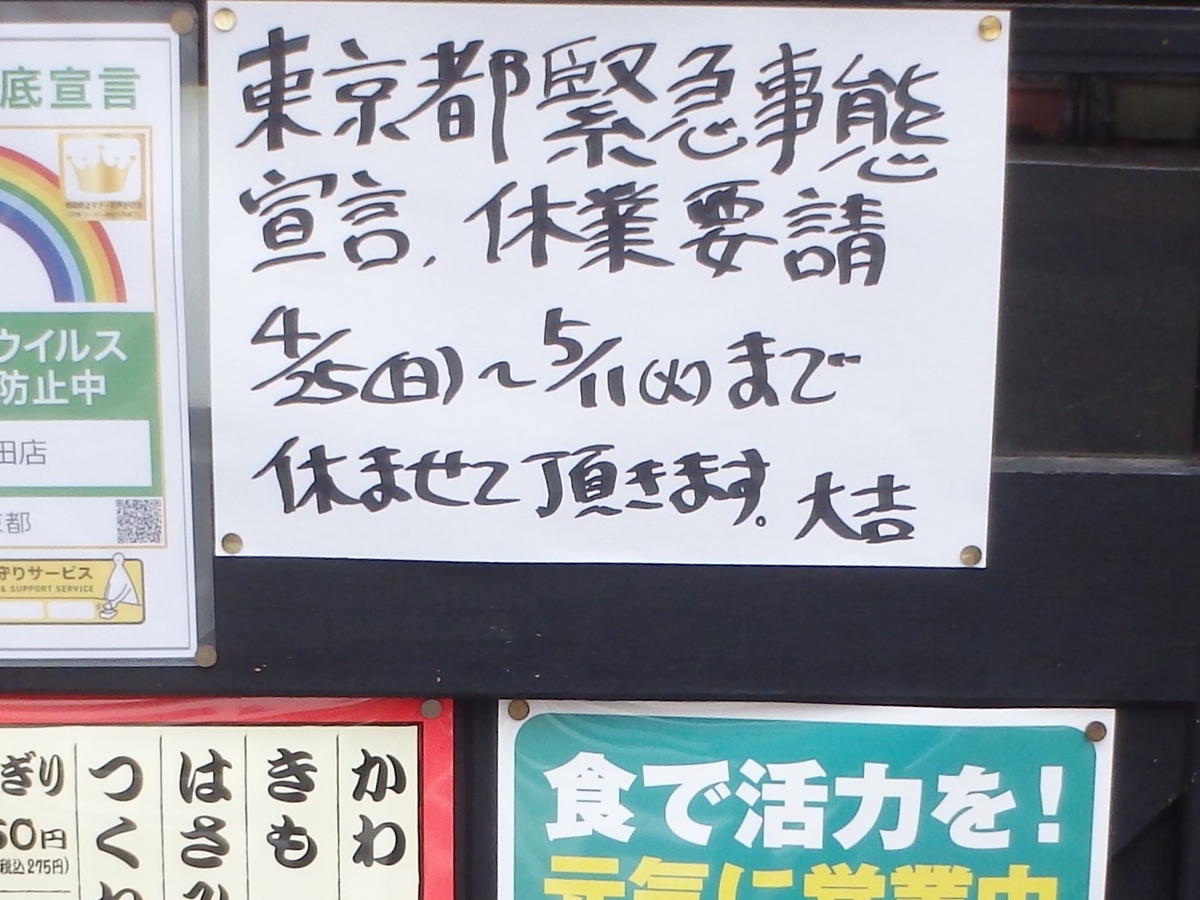 東京都緊急事態
宣言、休業要請
4/25(日)〜5/11(火)まで
休ませて頂きます。大吉
底宣言
ウイルス
防止中
田店
都
守りサービス
& SUPPORT SERVICE
かわ
きも
はさみ
つくね
ぎり
50円
(税込275円)
食で活力を!
元気に営業中